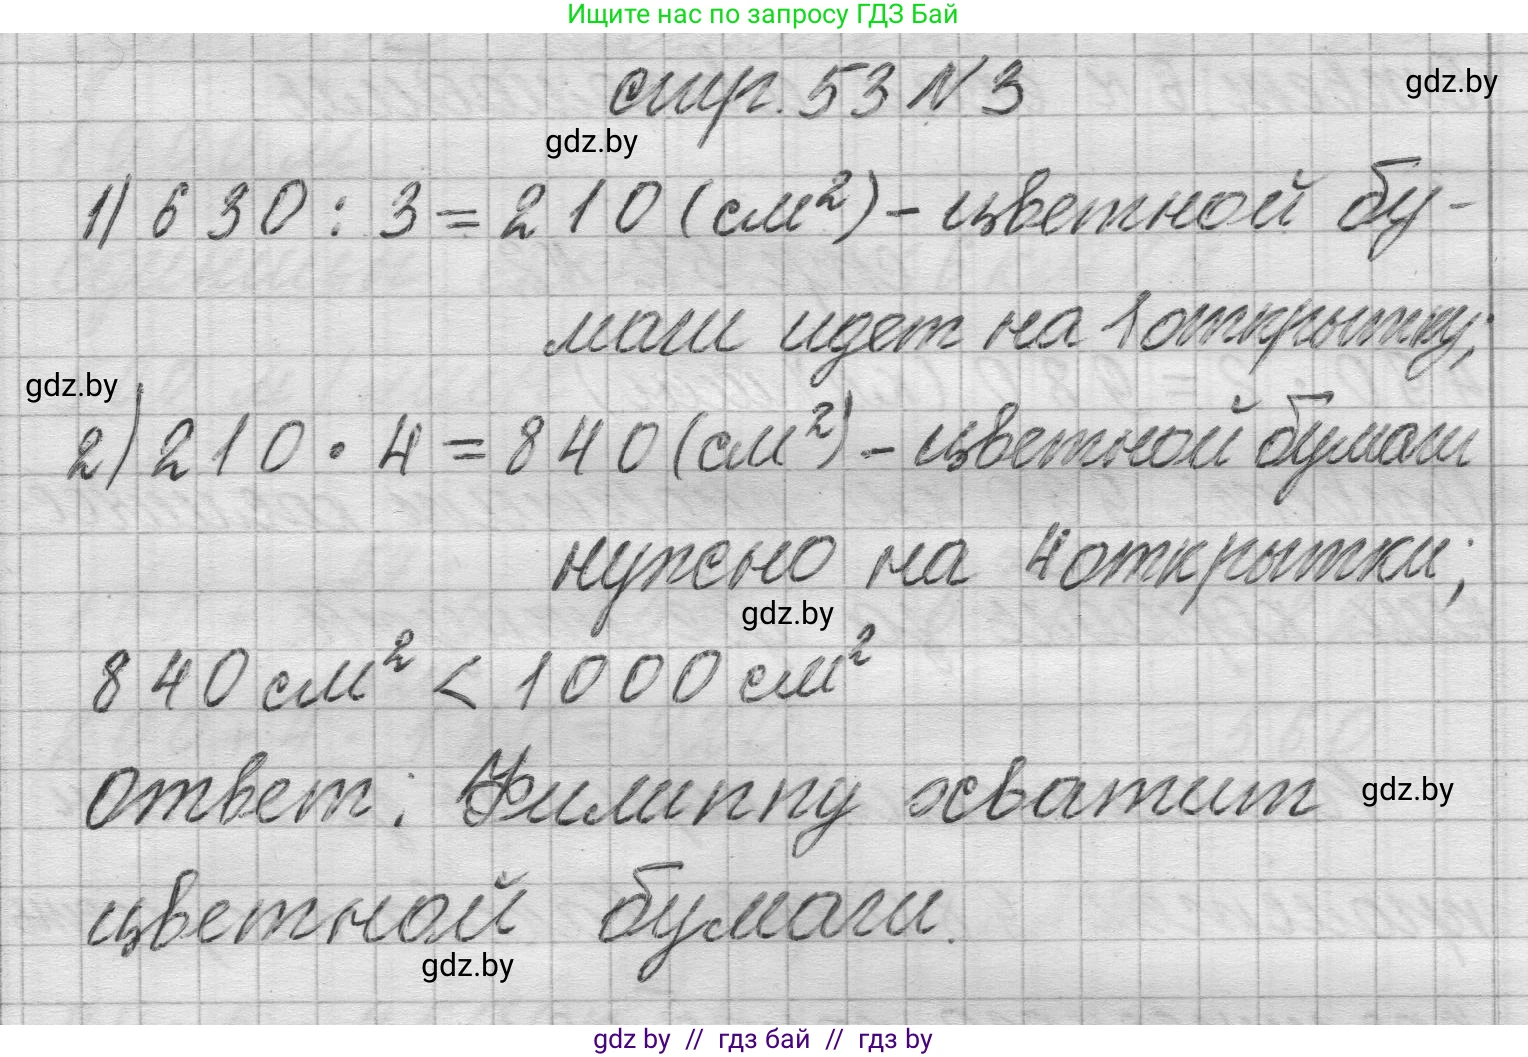 Ищите нас по запросу ГДЗ Бай
стр. 53 № 3
gdz.by
gdz.by
1) 630 : 3 = 210 (см²) – цветной бу-
маги идет на 1 открытку;
gdz.by
2) 210 · 4 = 840 (см²) – цветной бумаги
нужно на 4 открытки;
gdz.by
840 см² < 1000 см²
ответ: Филиппу хватит
gdz.by
цветной бумаги.
gdz.by
gdz.by // гдз бай // гдз by